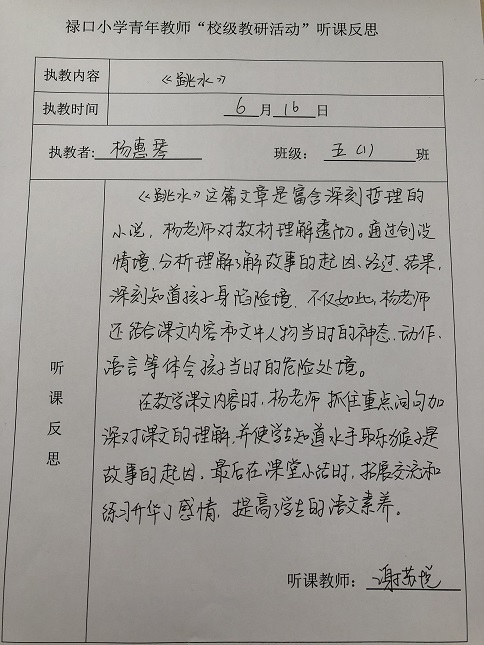 禄口小学青年教师“校级教研活动”听课反思
执教内容 《跳水》
执教时间 6月16日
执教者: 杨惠琴 班级: 五(1)班
听课反思
《跳水》这篇文章是富含深刻哲理的
小说，杨老师对教材理解透彻。通过创设
情境，分析理解了解故事的起因、经过、结果，
深刻知道孩子身陷险境，不仅如此，杨老师
还结合课文内容和文中人物当时的神态、动作、
语言等体会孩子当时的危险处境。
在教学课文内容时，杨老师抓住重点词句加
深对课文的理解，并使学生知道水手取乐猴子是
故事的起因，最后在课堂小结时，拓展交流和
练习升华了感情，提高了学生的语文素养。
听课教师: 谢苏悦